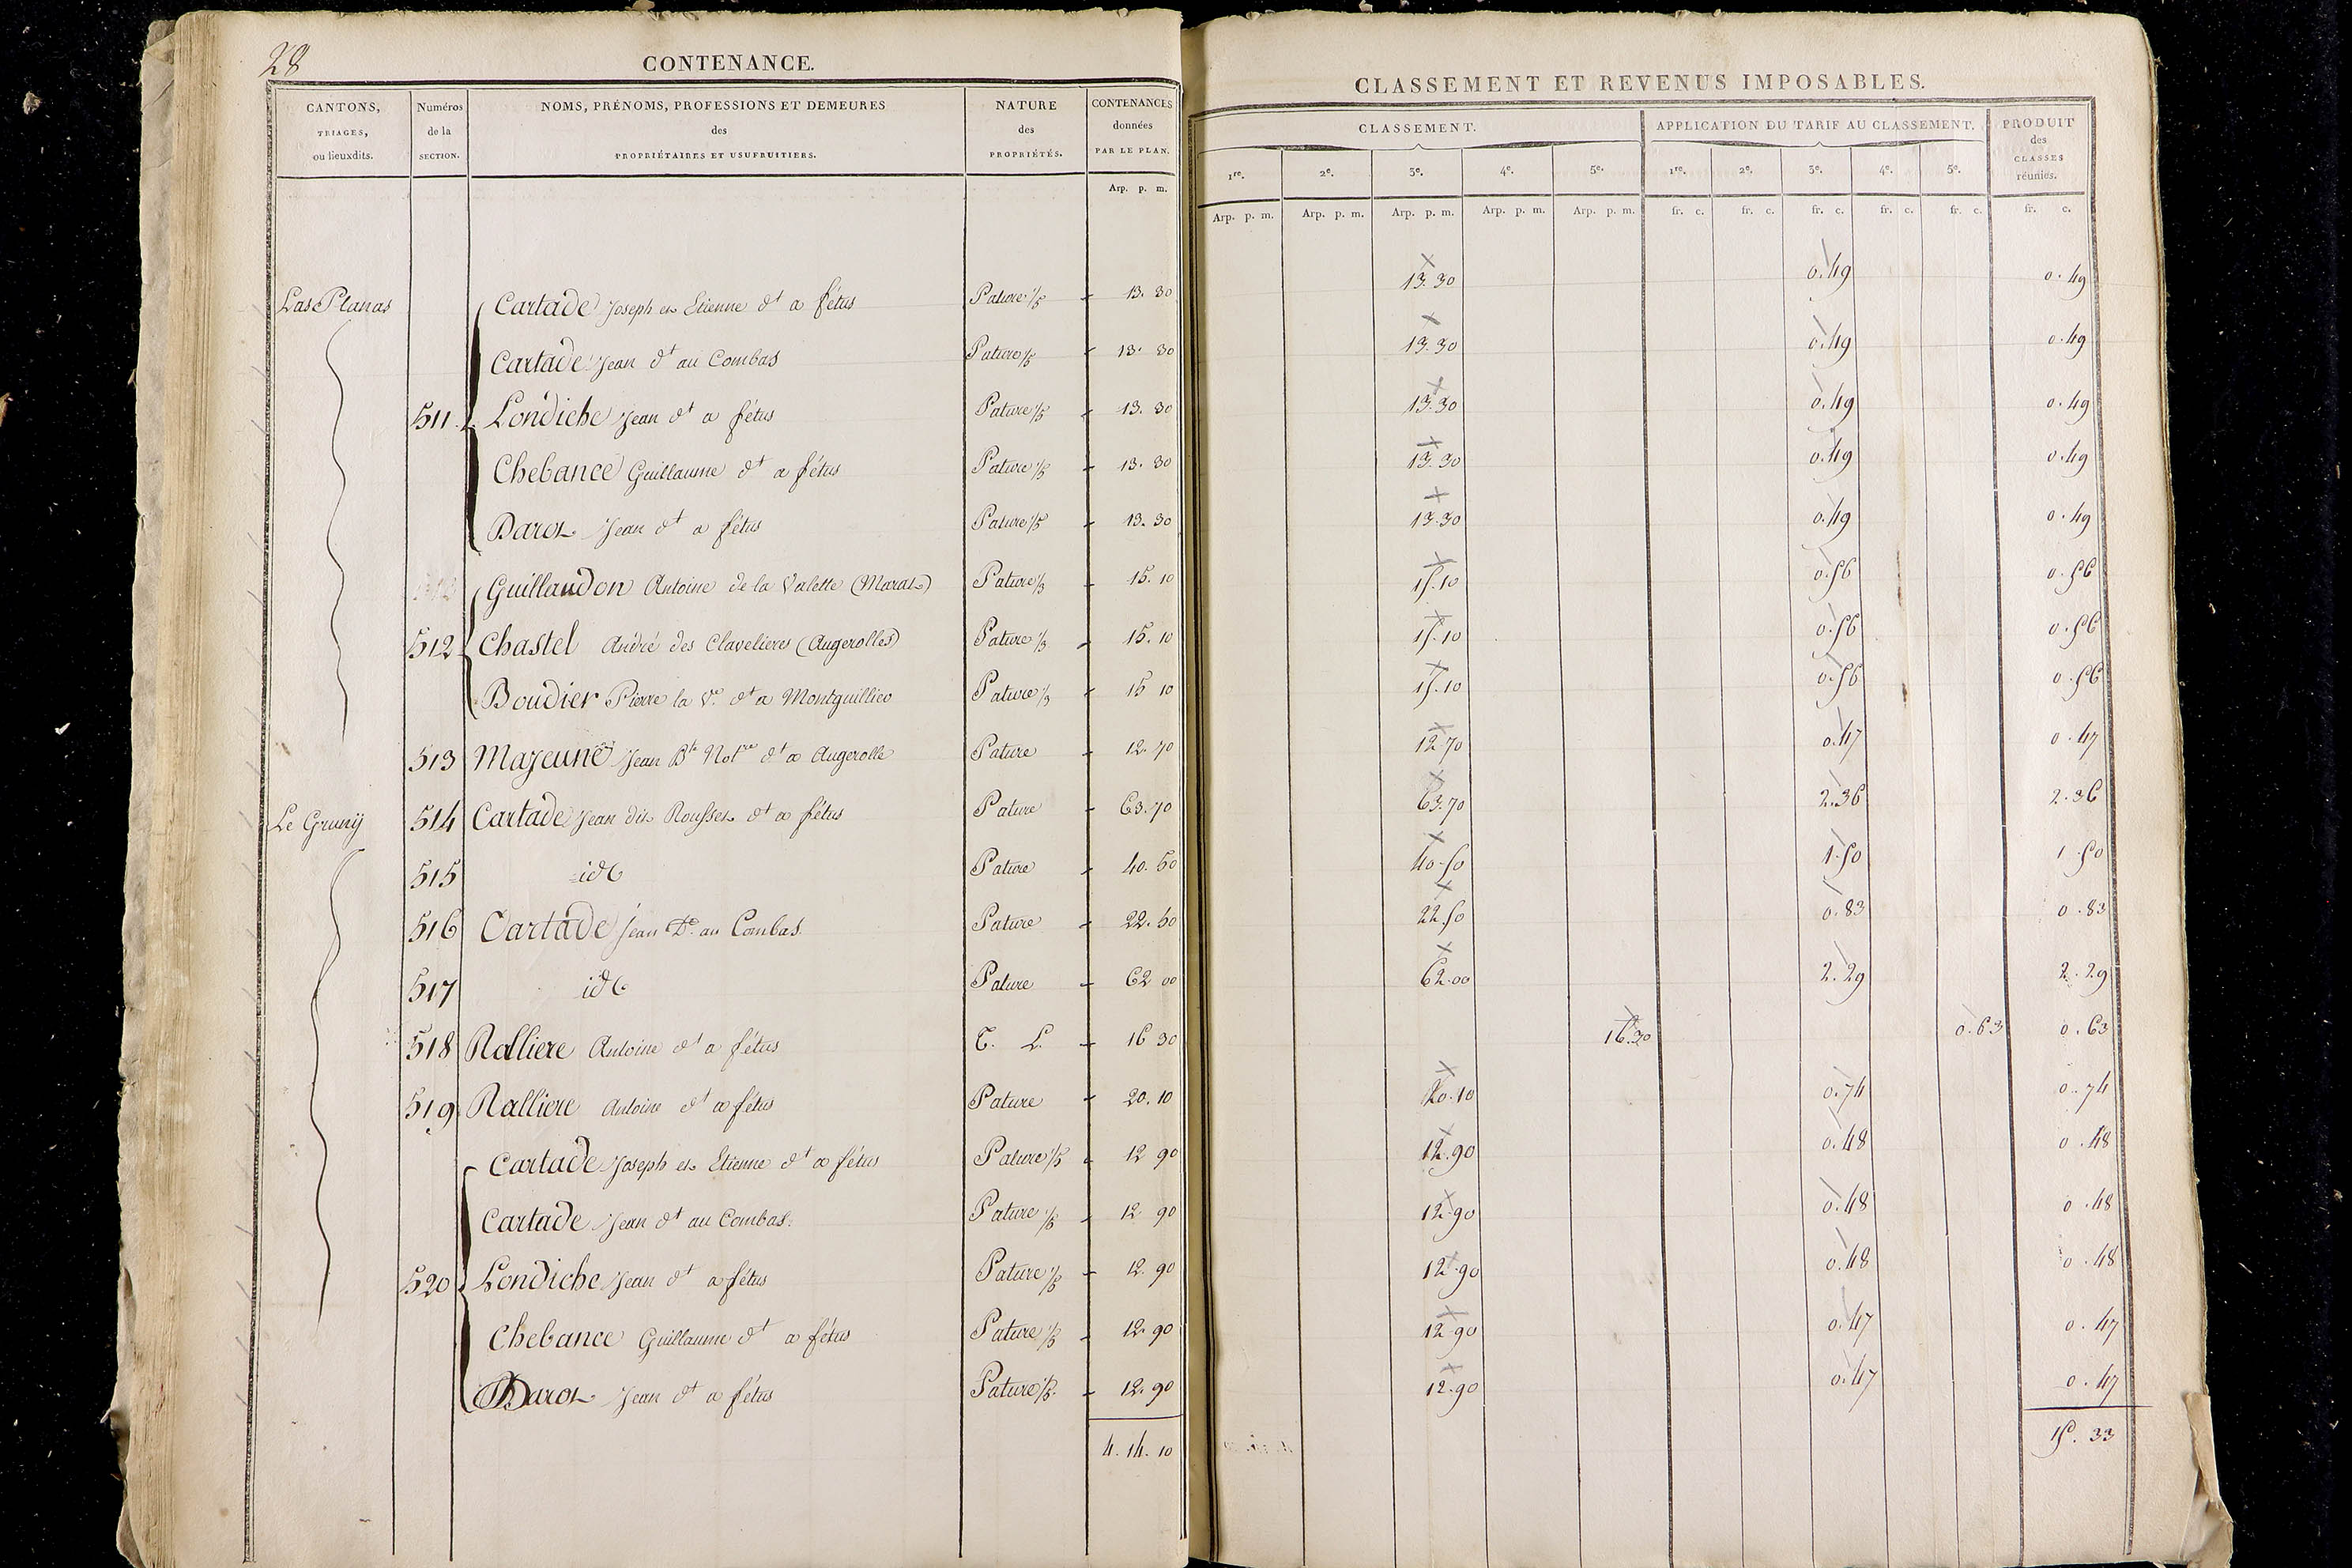 28
CONTENANCE.
CANTONS,
TRIAGES,
ou lieuxdits.
Numéros
de la
SECTION.
NOMS, PRÉNOMS, PROFESSIONS ET DEMEURES
des
PROPRIÉTAIRES ET USUFRUITIERS.
NATURE
des
PROPRIÉTÉS.
CONTENANCES
données
PAR LE PLAN.
Arp. p. m.
Las Planas Cartade Joseph et Etienne dt a fétus Pature 1/5 - 13. 30
Cartade Jean dt au Combas Pature 1/5 - 13. 30
511 Londiche Jean dt a fétus Pature 1/5 - 13. 30
Chebance Guillaume dt a fétus Pature 1/5 - 13. 30
Barot Jean dt a fétus Pature 1/5 - 13. 30
Guillaudon Antoine de la Valette (Marat) Pature 1/3 - 15. 10
512 Chastel André des Clavelieres (Augerolles) Pature 1/3 - 15. 10
Boudier Pierre la Ve. dt a Montguillieo Pature 1/3 - 15 10
513 Majeune Jean Bte Notre dt a Augerolle Pature - 12. 70
Le Gruny 514 Cartade Jean dit Rousset dt a fétus Pature - 63. 70
515 id Pature - 40. 50
516 Cartade Jean Dt. au Combas Pature - 22. 50
517 id Pature - 62 00
518 Ralliere Antoine dt a fétus T. L. - 16 30
519 Ralliere Antoine dt a fétus Pature - 20. 10
Cartade Joseph et Etienne dt a fétus Pature 1/5 - 12 90
Cartade Jean dt au Combas. Pature 1/5 - 12 90
520 Londiche Jean dt a fétus Pature 1/5 - 12. 90
Chebance Guillaume dt a fétus Pature 1/5 - 12. 90
Barot Jean dt a fétus Pature 1/5. - 12. 90
4. 14. 10
CLASSEMENT ET REVENUS IMPOSABLES.
CLASSEMENT.
APPLICATION DU TARIF AU CLASSEMENT.
PRODUIT
des
CLASSES
réunies.
1re. 2e. 3e. 4e. 5e. 1re. 2e. 3e. 4e. 5e.
Arp. p. m. Arp. p. m. Arp. p. m. Arp. p. m. Arp. p. m. fr. c. fr. c. fr. c. fr. c. fr. c. fr. c.
13.30 0.49 0.49
13.30 0.49 0.49
13.30 0.49 0.49
13.30 0.49 0.49
13.30 0.49 0.49
15.10 0.56 0.56
15.10 0.56 0.56
15.10 0.56 0.56
12.70 0.47 0.47
63.70 2.36 2.36
40.50 1.50 1.50
22.50 0.83 0.83
62.00 2.29 2.29
16.30 0.63 0.63
20.10 0.74 0.74
12.90 0.48 0.48
12.90 0.48 0.48
12.90 0.48 0.48
12.90 0.47 0.47
12.90 0.47 0.47
15. 33